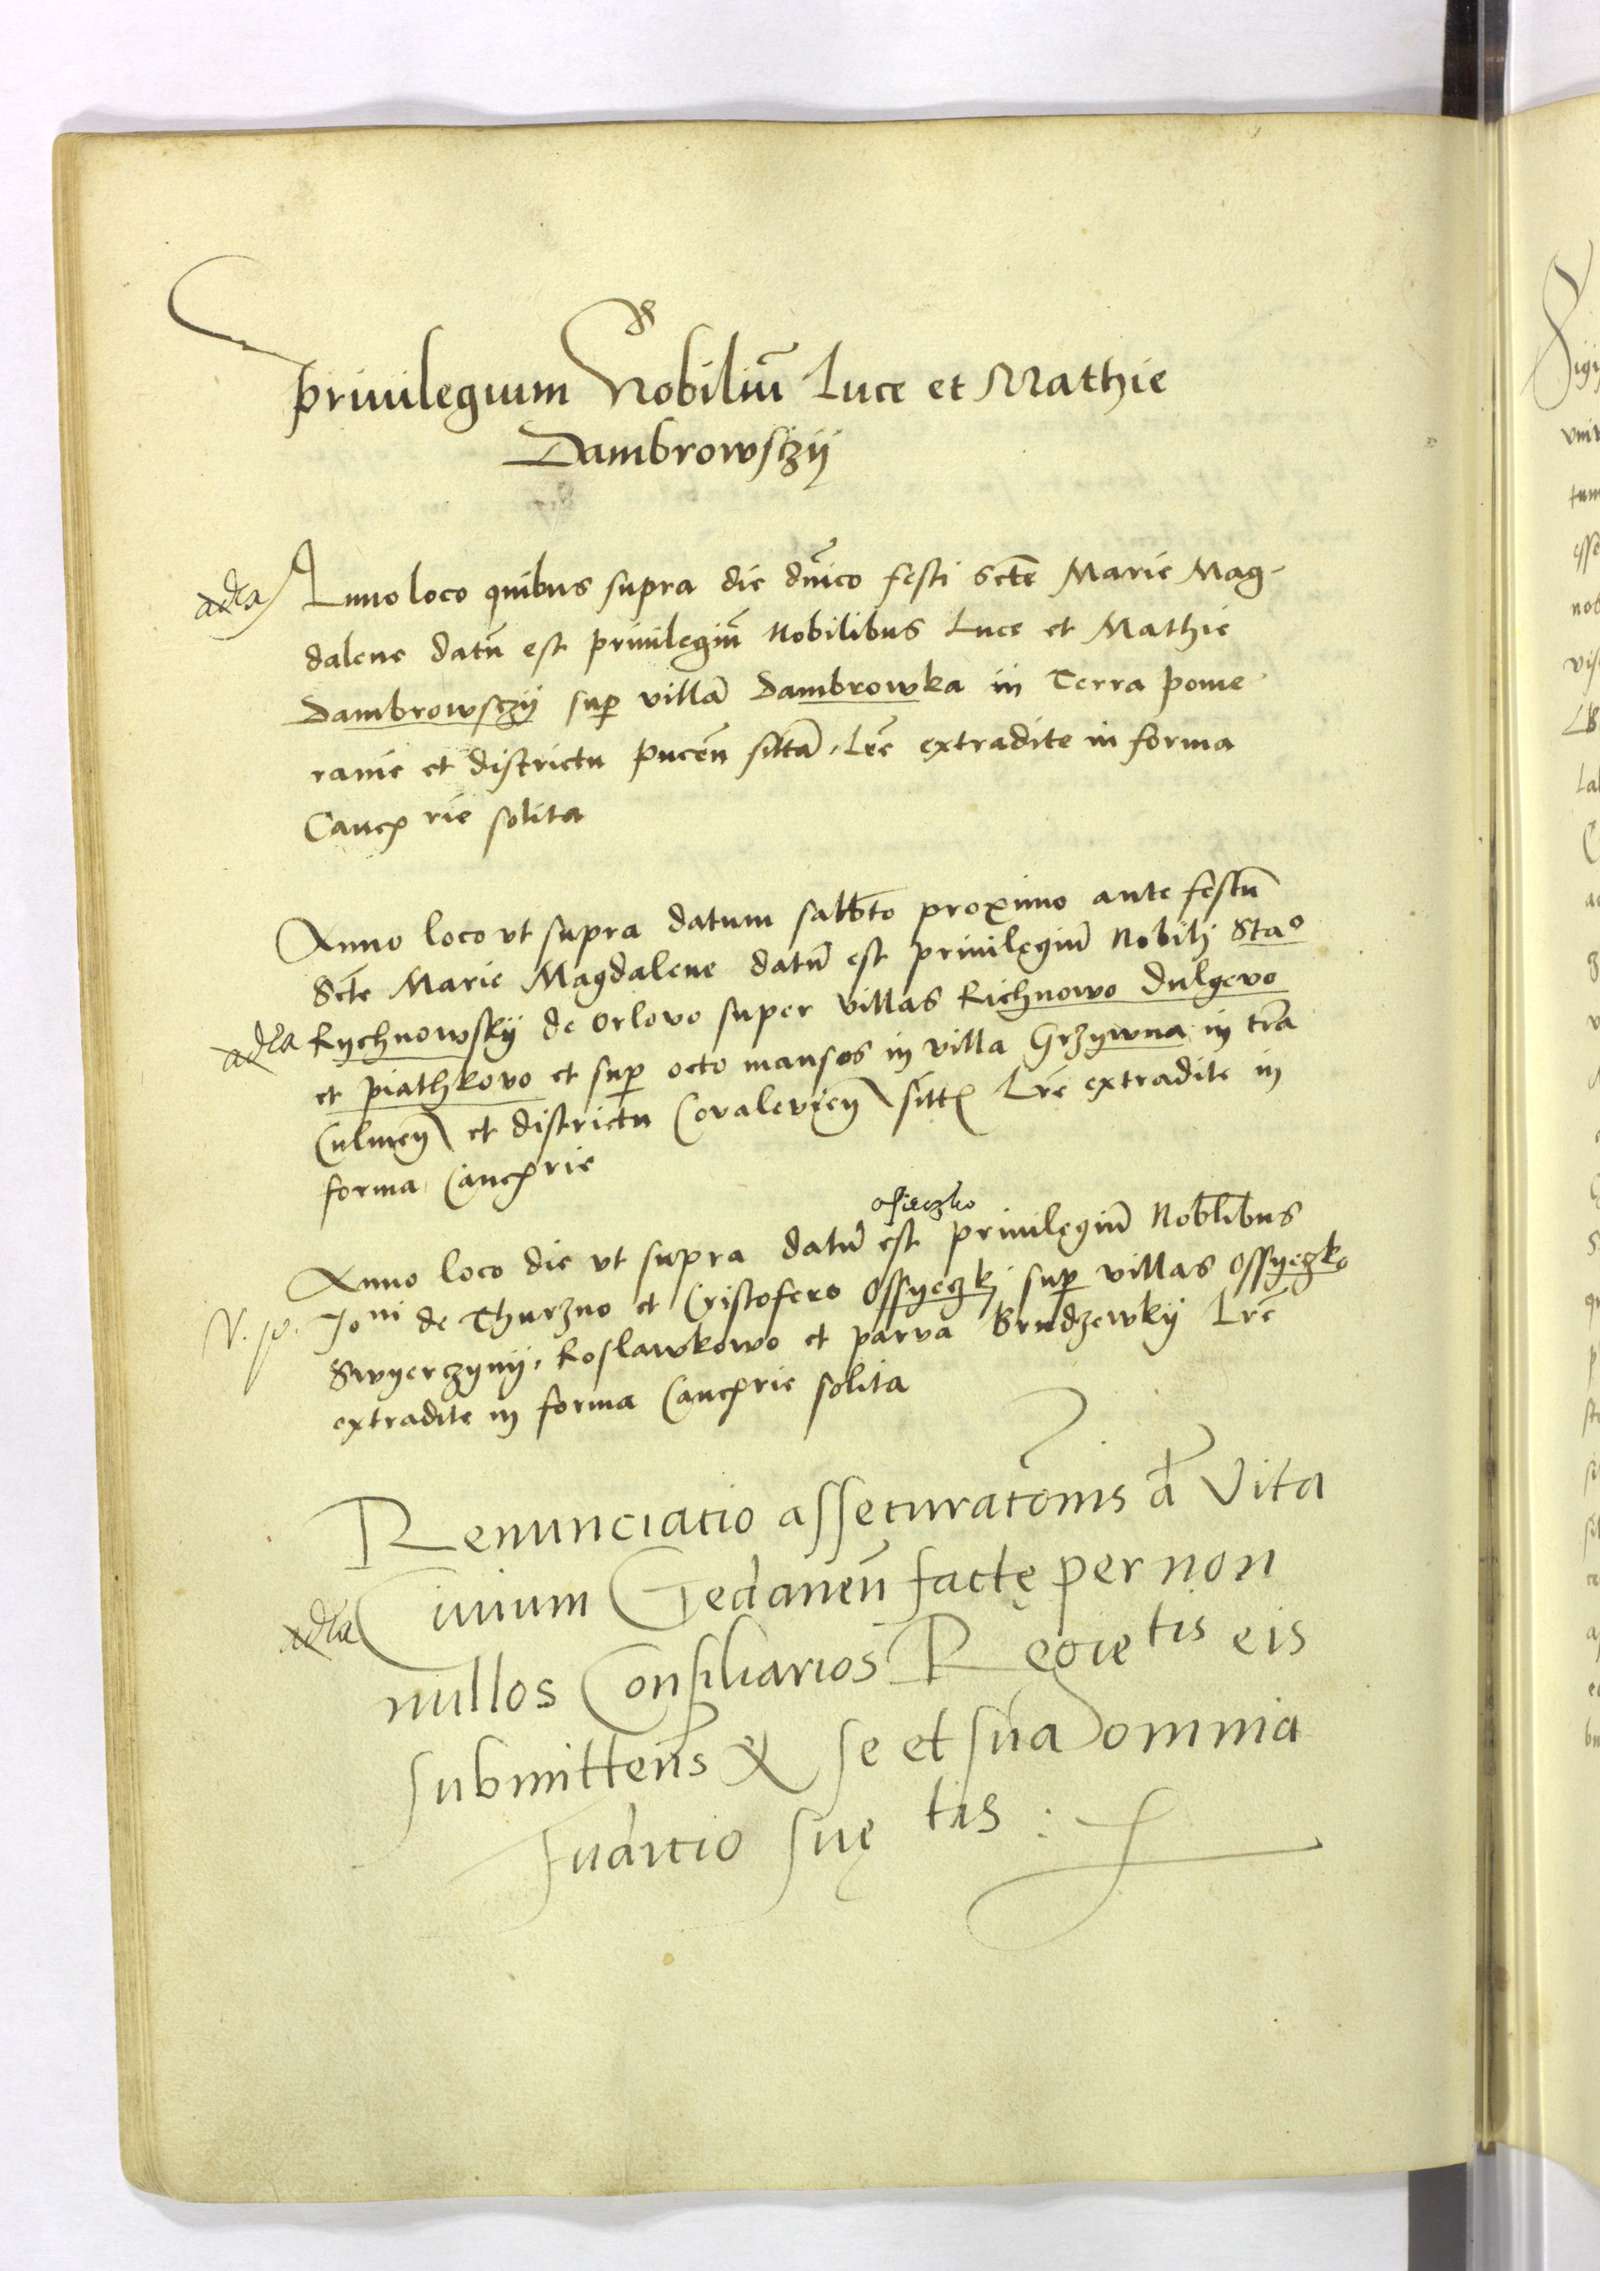 Priuilegium Nobiliũ Luce et Mathie
Dambrowsczÿ
adla Anno loco quibus supra die dñico festi Scte Marie Mag-
dalene datũ est priuilegiũ Nobilibus Luce et Mathie
Dambrowsczÿ sup villã Dambrowka in Terra pome
ranie et districtu pucẽn sittã. Lrẽ extradite in forma
Canc rie solita
Anno loco vt supra datum sabbto proximo ante festũ
Scte Marie Magdalene datũ est priuilegiũ Nobili Stao
adla Rychnowskÿ de Orlovo super villas Richnowo Dulgevo
et piathkovo et sup octo mansos in villa Grzywna in trã
Culmeñ et districtu Covalevieñ sitt Lrẽ extradite in
forma Cancrie
osieczko
Anno loco die vt supra datũ est priuilegiũ Noblibus
Joni de Thurzno et Cristofero Ossyeczkj sup villas Ossyeczko
Swyerczynÿ, Roslawkowo et parva Brudzewkÿ Lrẽ
extradite in forma Cancrie solita
Renunciatio assecuratõnis ã Vita
adla Ciuium Gedaneñ factę per non
nullos Consiliarios Regie tis eis
submitteñs se et sua omnia
Judicio suę tis :